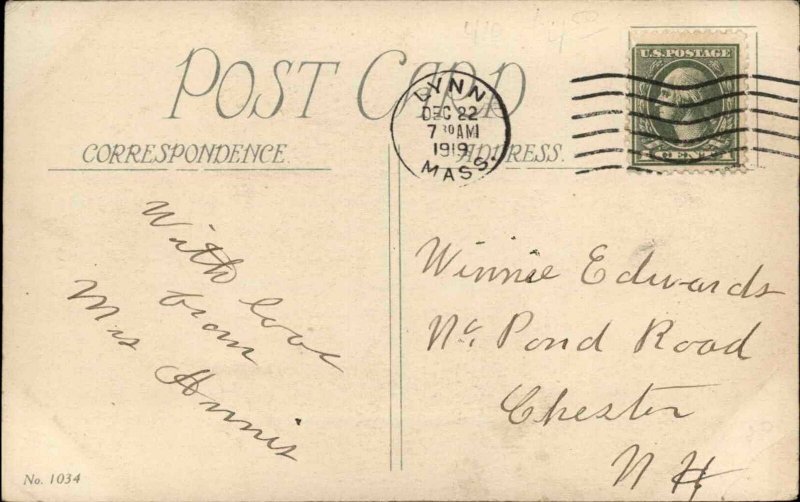 POST CARD
CORRESPONDENCE.
ADDRESS.
LYNN
DEC 22
7 30 AM
1919
MASS.
U.S. POSTAGE
With love
from
Mrs Annis
Winnie Edwards
Nc. Pond Road
Chester
N H
No. 1034